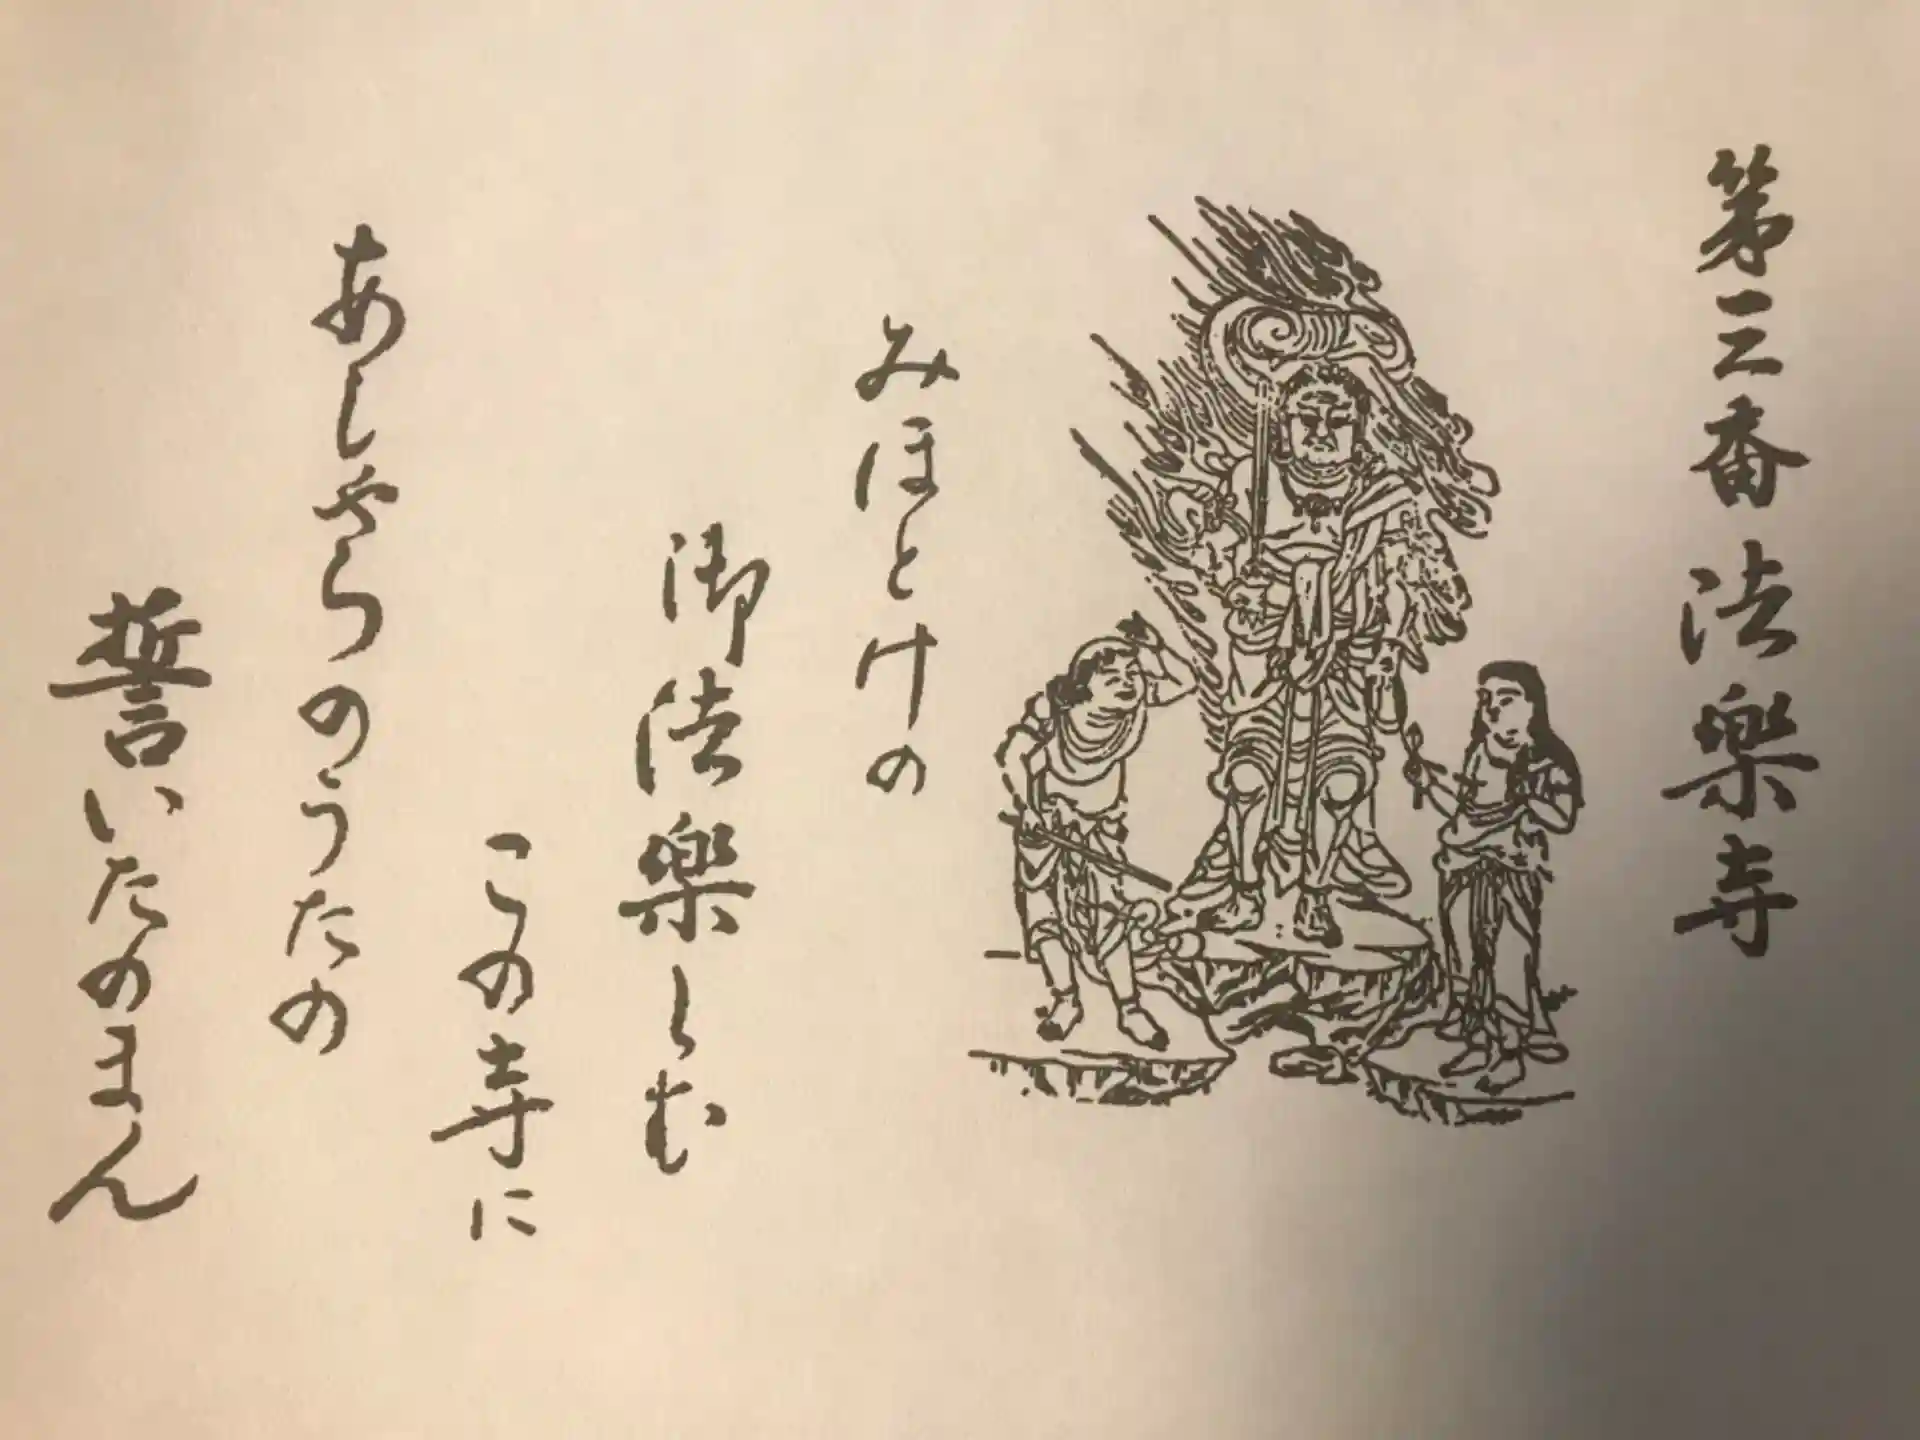 第三番 法樂寺
みほとけの
御法樂しむ
この寺に
あじゃらのうたの
誓いたのまん